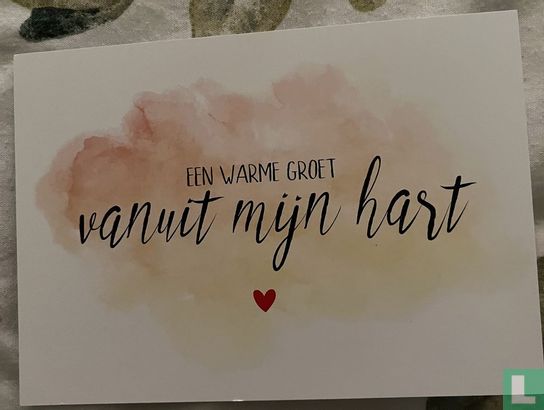 EEN WARME GROET
vanuit mijn hart
L